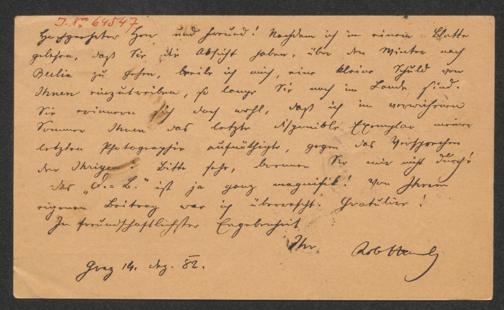 I. N. 64547
Hochgeehrter Herr und Freund! Nachdem ich in einem Blatte
gelesen, daß Sie die Absicht haben, über den Winter nach
Berlin zu gehen, beeile ich mich, eine kleine Schuld von
Ihnen einzutreiben, so lange Sie noch im Lande sind.
Sie erinnern sich doch wohl, daß ich im verwichenen
Sommer Ihnen das letzte disponible Exemplar meiner
letzten Photographie aufnöthigte, gegen das Versprechen
der Ihrigen. Bitte sehr, brennen Sie mir nicht durch!
Das ist ja ganz magnifik! Von Ihrem
eigenen Beitrag war ich überrascht. Gratulire!
In freundschaftlichster Ergebenheit
Ihr
Graz 14. Dez. 82.